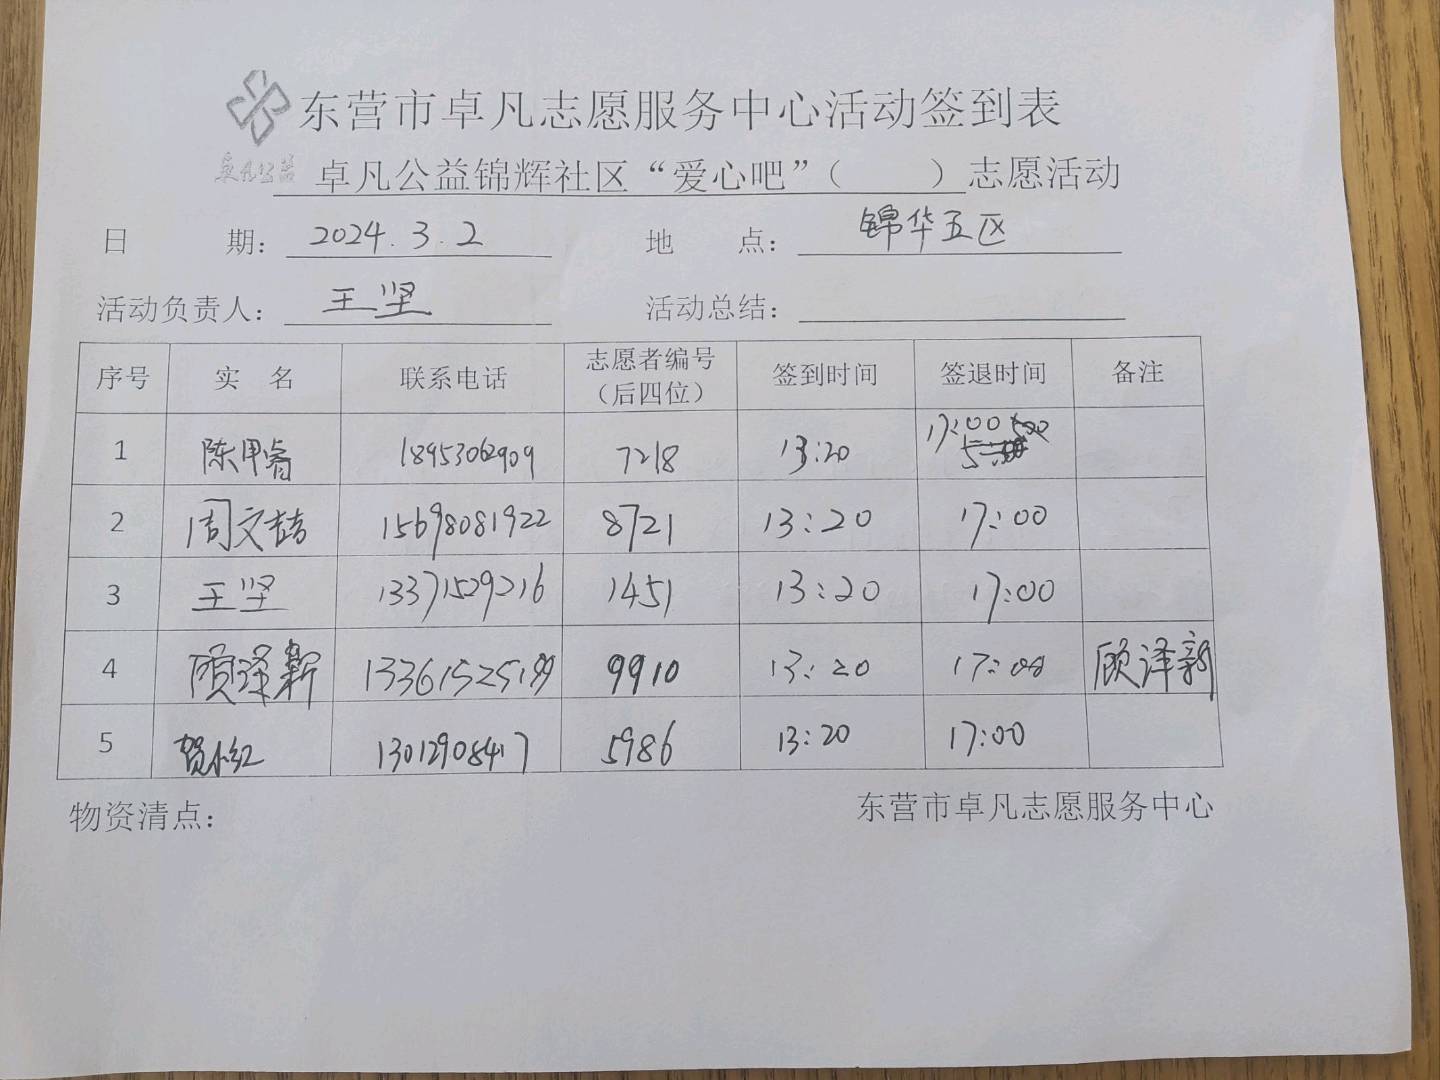 东营市卓凡志愿服务中心活动签到表
卓凡公益
卓凡公益锦辉社区“爱心吧”（ ）志愿活动
日 期： 2024.3.2 地 点： 锦华五区
活动负责人： 王坚 活动总结：
序号 实 名 联系电话 志愿者编号（后四位） 签到时间 签退时间 备注
1 陈甲睿 18953062909 7218 13:20 17:00
2 周文喆 15698081922 8721 13:20 17:00
3 王坚 13371529216 1451 13:20 17:00
4 顾泽新 9910 13:20 17:00 顾泽新
5 贺小红 13012908417 5986 13:20 17:00
物资清点： 东营市卓凡志愿服务中心